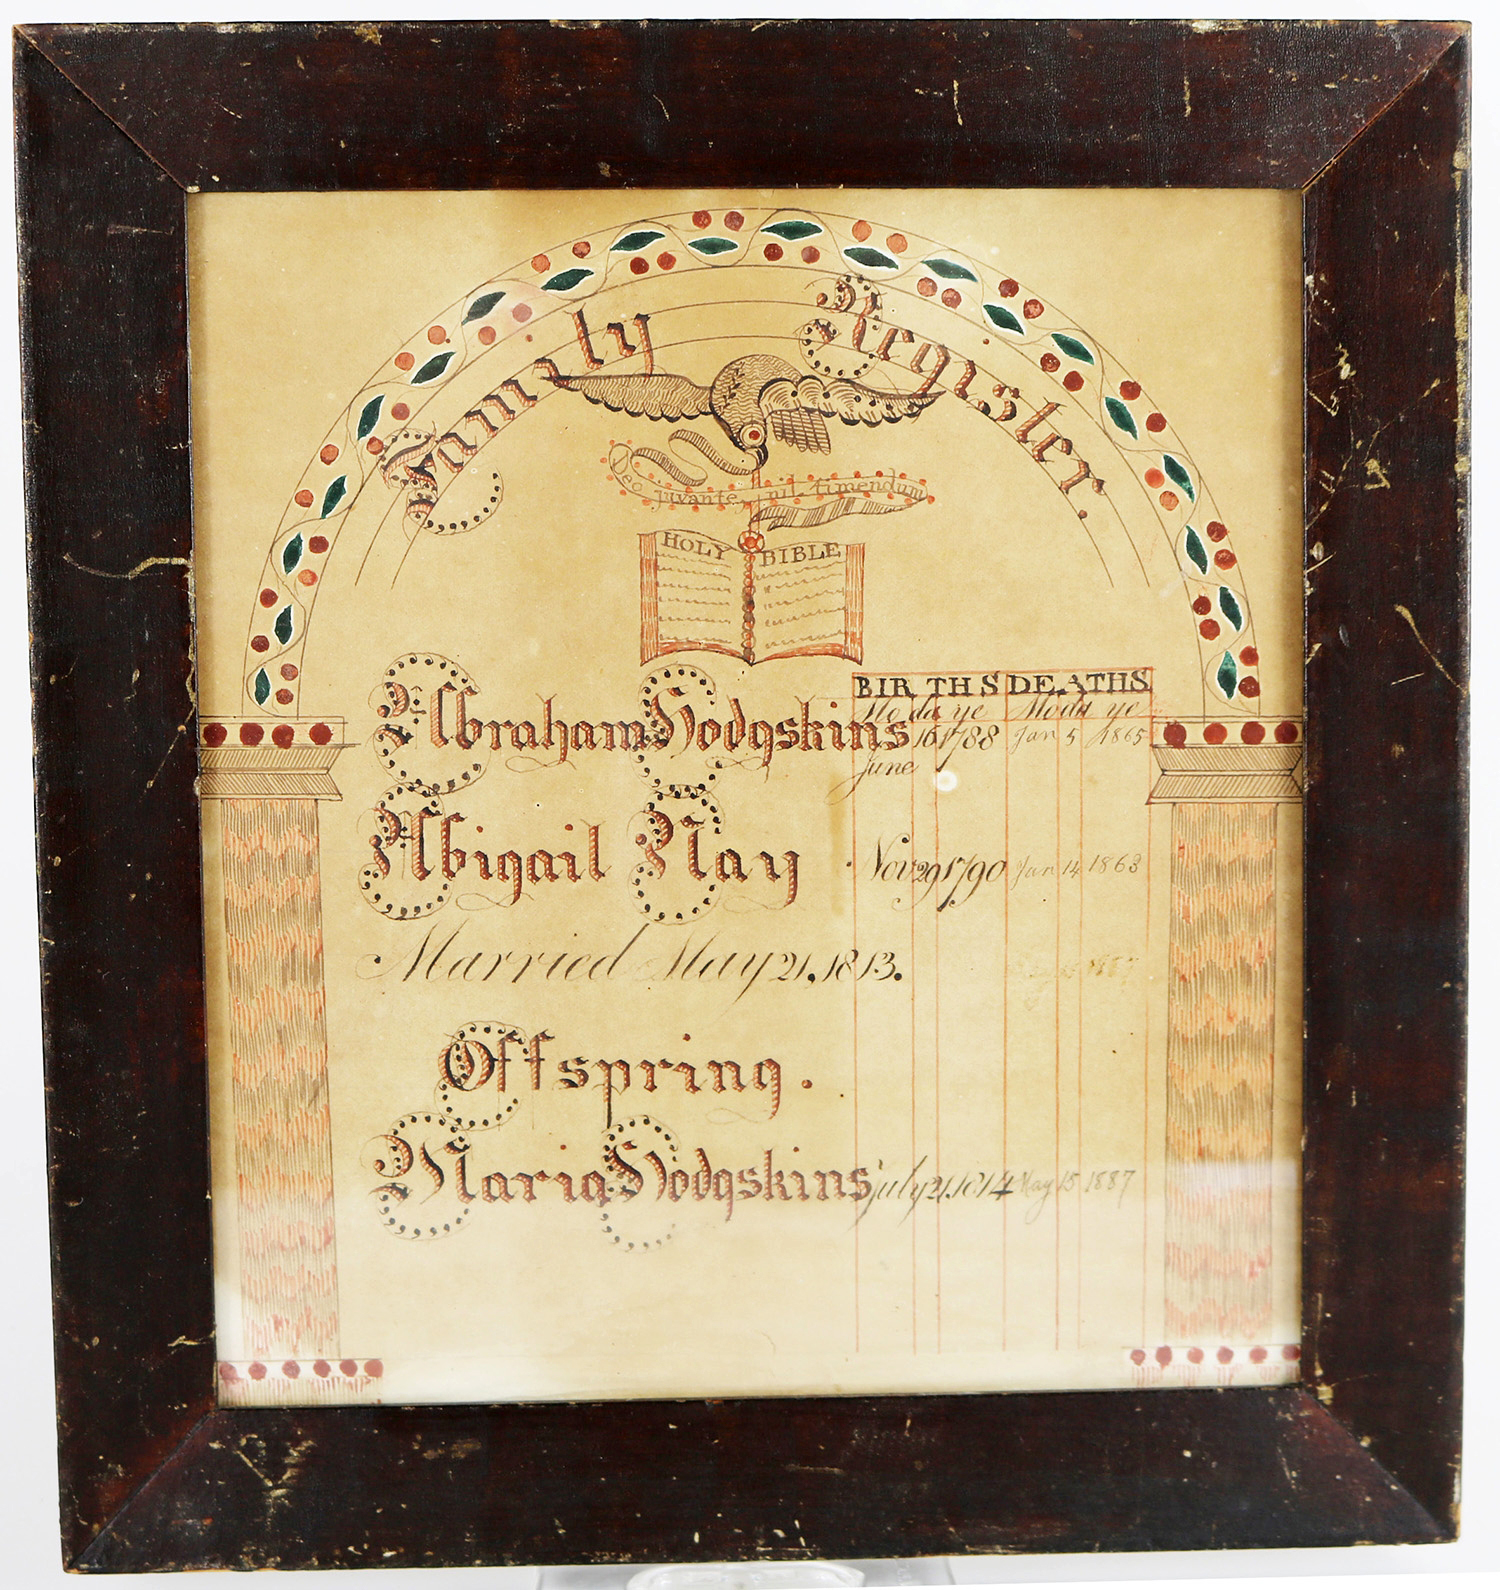 Family Register.
Deo juvante, nil timendum
HOLY BIBLE
BIRTHS DEATHS
Mo da ye Mo da ye
Abraham Hodgskins 16 1788 Jan 5 1865
June
Abigail Nay Nov 29 1790 Jan 14 1863
Married May 21. 1813.
1887
Offspring.
Maria Hodgskins July 21. 1814 May 15 1887